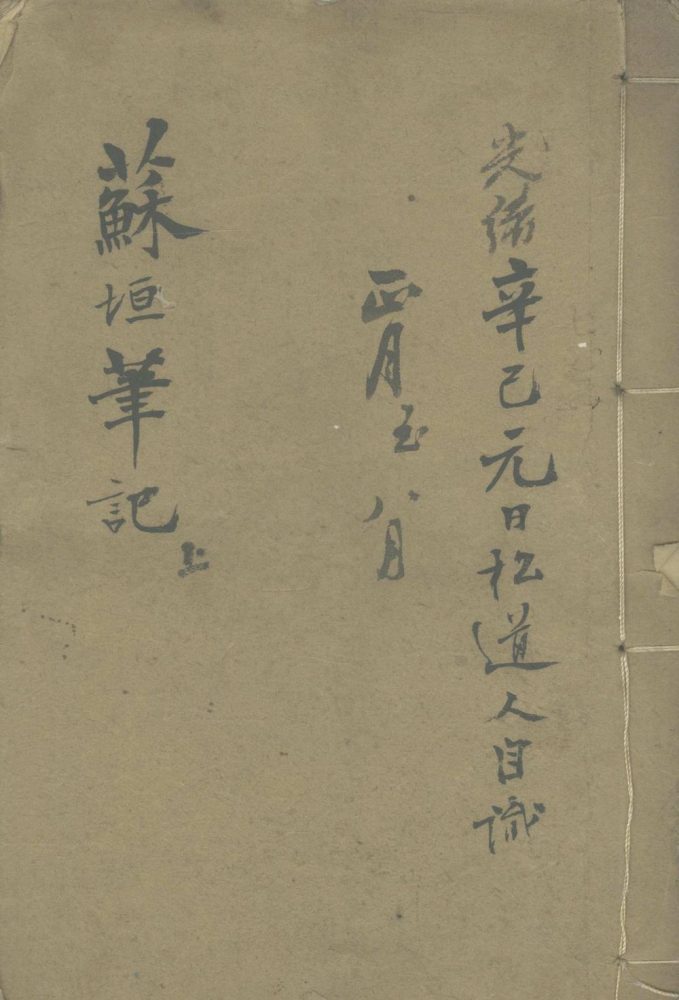 光緒辛巳元日松道人自識
正月至八月
蘇垣筆記上